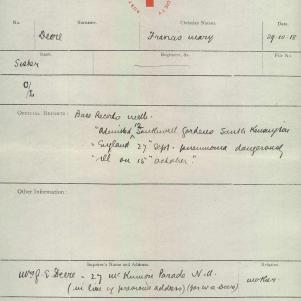 No.
Surname.
Christian Names.
Date.
Deere
Francis Mary
29-10-18
Rank.
Regiment, &c.
File No.
Sister
OFFICIAL REPORTS: Base Records wire
"Admitted 12 Southwell Gardens South Kensington
England 27th Sept. pneumonia dangerously
ill on 15th October."
Other Information:
Inquirer's Name and Address.
Relation
Mrs J. E Deere - 27 McKinnon Parade N.A.
(in lieu of previous address) (for w.a Deere)
mother